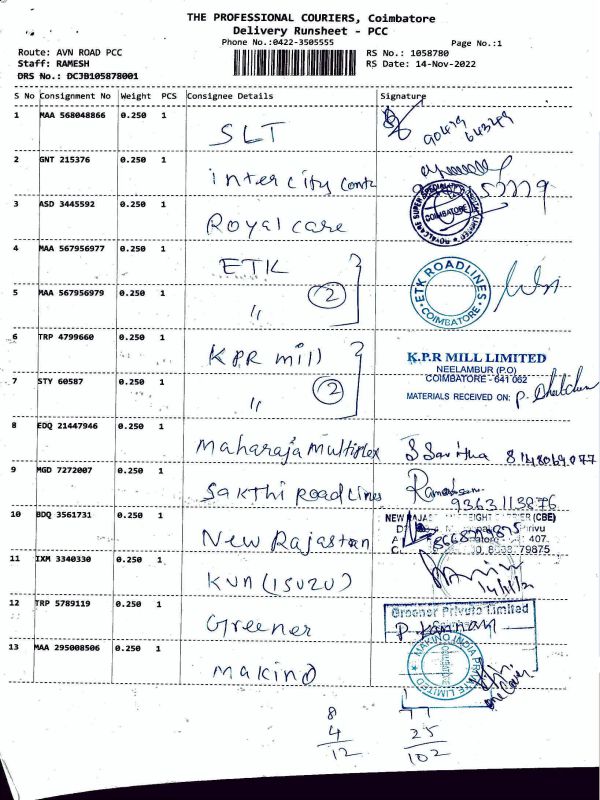 THE PROFESSIONAL COURIERS, Coimbatore
Delivery Runsheet - PCC
Phone No.:0422-3505555
Page No.:1
Route: AVN ROAD PCC
RS No.: 1058780
Staff: RAMESH
RS Date: 14-Nov-2022
DRS No.: DCJB105878001
S No Consignment No Weight PCS Consignee Details Signature
1 MAA 568048866 0.250 1 SLT
2 GNT 215376 0.250 1 Intercity
3 ASD 3445592 0.250 1 Royal care
COIMBATORE
4 MAA 567956977 0.250 1 ETK
ETK ROADLINES
COIMBATORE
5 MAA 567956979 0.250 1 " 2
6 TRP 4799660 0.250 1 KPR mill
K.P.R MILL LIMITED
NEELAMBUR (P.O)
COIMBATORE - 641 062
7 STY 60587 0.250 1 " 2
MATERIALS RECEIVED ON: P.
8 EDQ 21447946 0.250 1 Maharaja Multiplex
9 MGD 7272007 0.250 1 Sakthi Road Lines
9363113876
10 BDQ 3561731 0.250 1 New Rajastan
NEW (CBE)
407.
79875
11 IXM 3340330 0.250 1 KUN (ISUZU)
12 TRP 5789119 0.250 1 Greener
Greener Private Limited
P. Kannan
13 MAA 295008506 0.250 1 Makino
MAKINO INDIA PRIVATE LIMITED
8 77
4 25
12 102